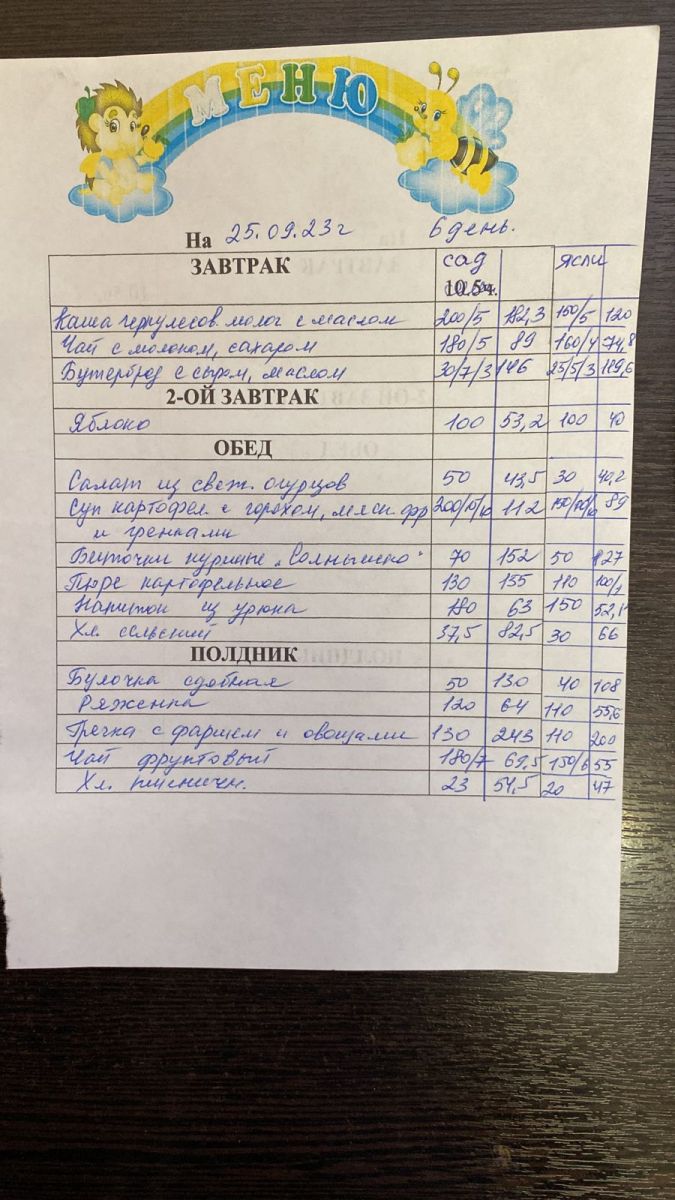 МЕНЮ
На 25.09.23г 6 день.
ЗАВТРАК сад ясли
10.5ч.
Каша геркулесов. молоч с маслом 200/5 182,3 150/5 120
Чай с молоком, сахаром 180/5 89 160/4 74,8
Бутерброд с сыром, маслом 30/7/3 146 25/5/3 119,6
2-ОЙ ЗАВТРАК
Яблоко 100 53,2 100 40
ОБЕД
Салат из свеж. огурцов 50 43,5 30 40,2
Суп картофел. с горохом, мясн фр 200/10/10 112 89
и гренками
Биточки куриные „Солнышко" 70 152 50 127
Пюре картофельное 130 135 110
Напиток из урюка 180 63 150
Хл. сельский 37,5 82,5 30 66
ПОЛДНИК
Булочка сдобная 50 130 40 108
Ряженка 120 64 110 55,6
Гречка с фаршем и овощами 130 243 110 200
Чай фруктовый 180/7 150/6 55
Хл. пшеничн. 23 54,5 20 47